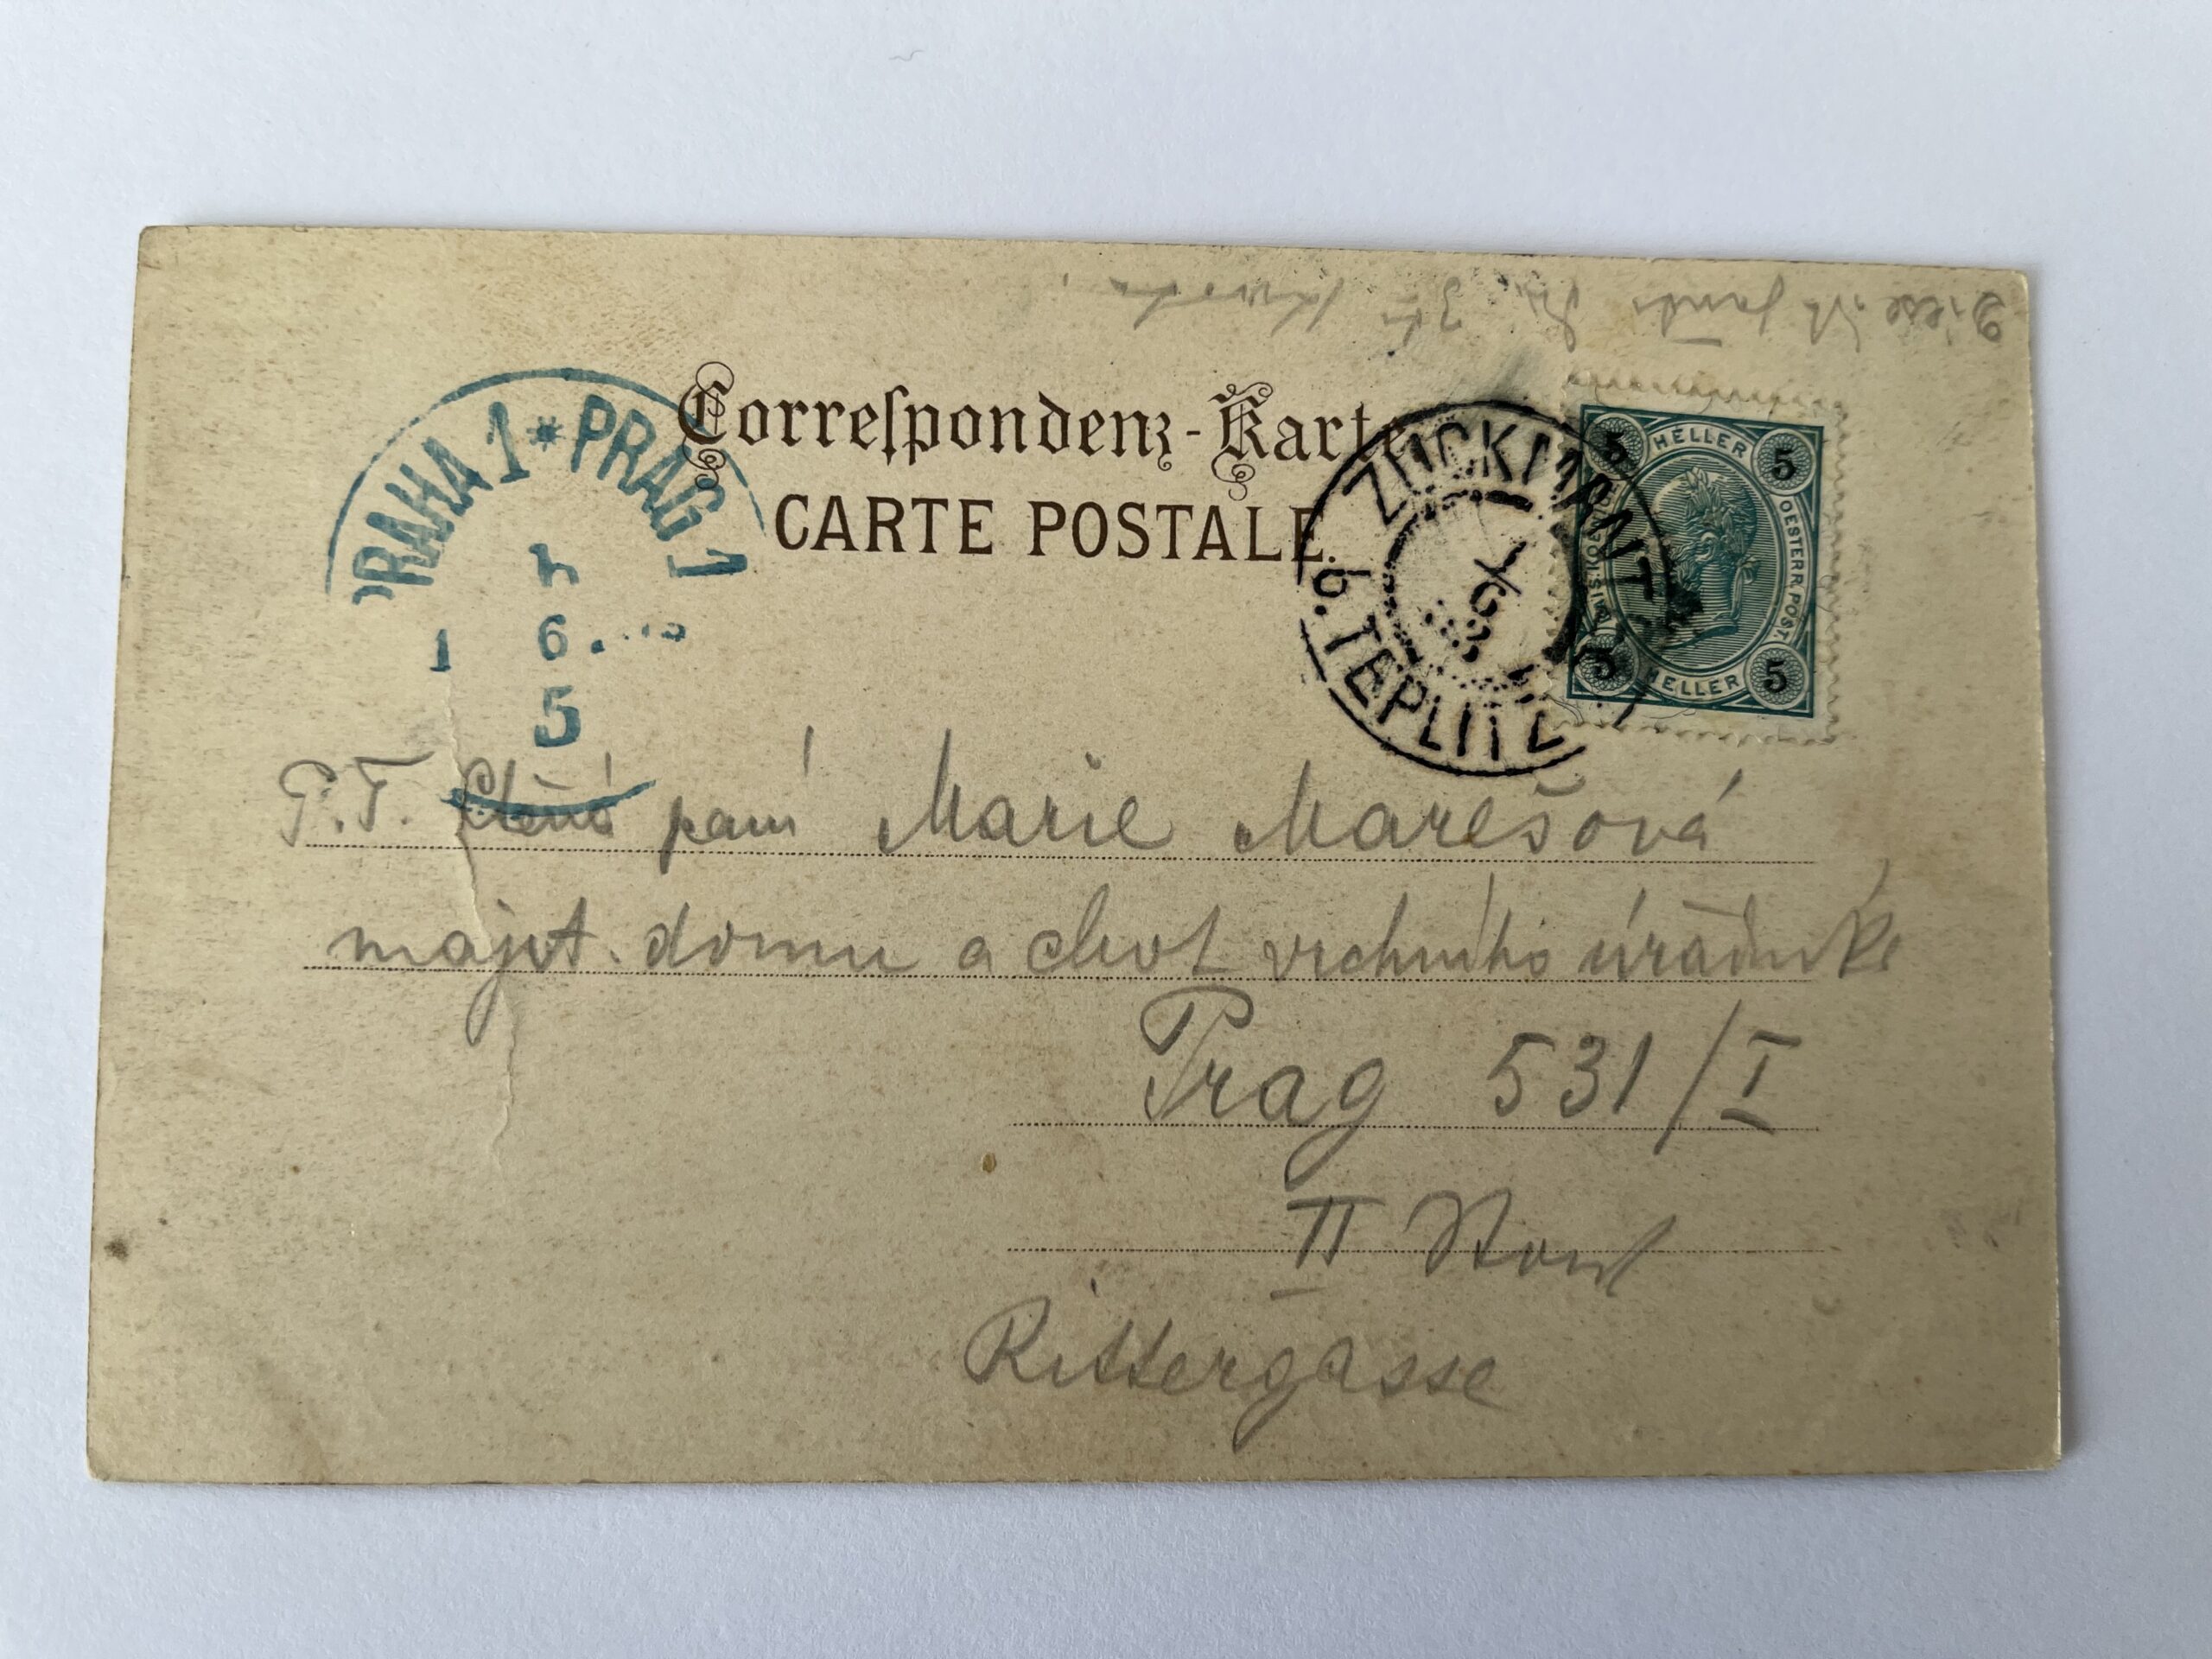 Correspondenz-Karte
CARTE POSTALE
PRAHA 1 * PRAG 1
6.
5
ZUCKMANTEL
b. TEPLITZ
5 HELLER 5
OESTERR. POST.
5 HELLER 5
P.T. Ctěná paní Marie Marešová
majit. domu a choť vrchního úředníka
Prag 531/I
II
Rittergasse